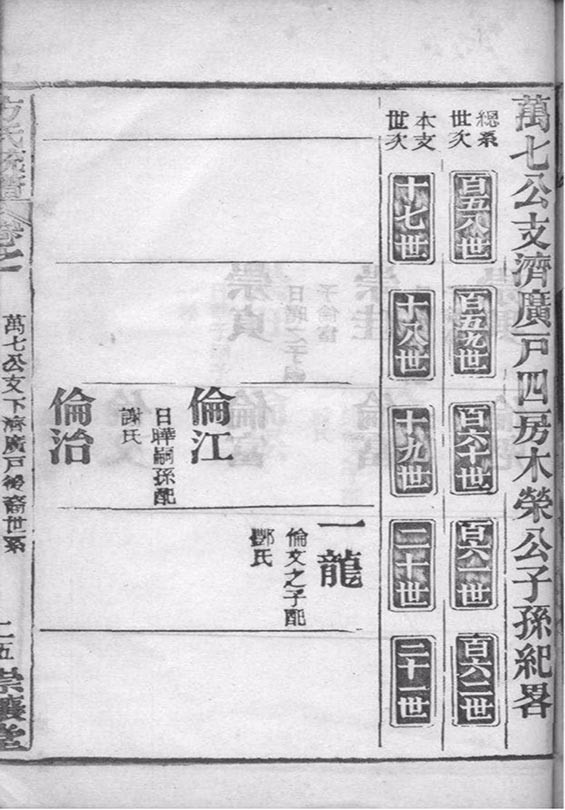 萬七公支濟廣戶四房木榮公子孫紀畧
總系世次
百五八世
百五九世
百六十世
百六一世
百六二世
本支世次
十七世
十八世
十九世
二十世
二十一世
一龍
倫文之子配
鄧氏
倫江
日曄嗣孫配
謝氏
倫治
方氏統譜
卷之一
萬七公支下濟廣戶後裔世系
二五
崇讓堂